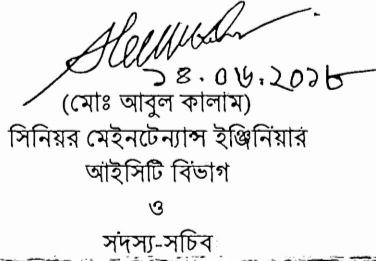 (মোঃ আবুল কালাম)
সিনিয়র মেইনটেন্যান্স ইঞ্জিনিয়ার
আইসিটি বিভাগ
ও
সদস্য-সচিব